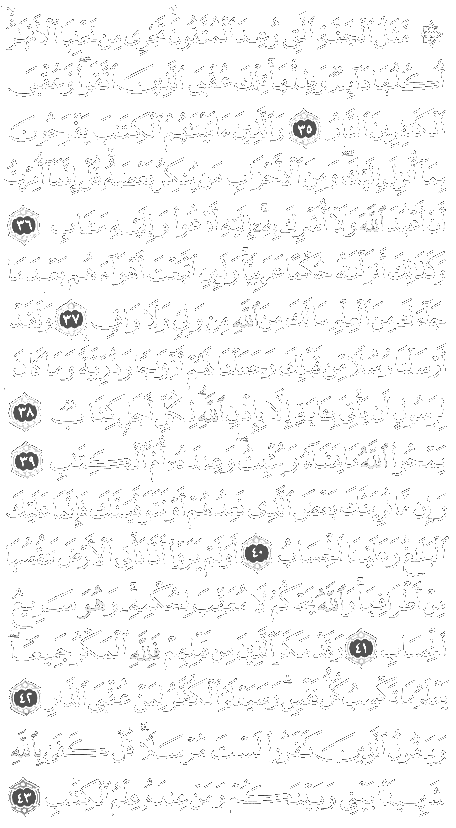 ۞ مَّثَلُ ٱلۡجَنَّةِ ٱلَّتِي وُعِدَ ٱلۡمُتَّقُونَۖ تَجۡرِي مِن تَحۡتِهَا ٱلۡأَنۡهَٰرُۖ
أُكُلُهَا دَآئِمٞ وَظِلُّهَاۚ تِلۡكَ عُقۡبَى ٱلَّذِينَ ٱتَّقَواْۚ وَّعُقۡبَى
ٱلۡكَٰفِرِينَ ٱلنَّارُ ٣٥ وَٱلَّذِينَ ءَاتَيۡنَٰهُمُ ٱلۡكِتَٰبَ يَفۡرَحُونَ
بِمَآ أُنزِلَ إِلَيۡكَۖ وَمِنَ ٱلۡأَحۡزَابِ مَن يُنكِرُ بَعۡضَهُۥۚ قُلۡ إِنَّمَآ أُمِرۡتُ
أَنۡ أَعۡبُدَ ٱللَّهَ وَلَآ أُشۡرِكَ بِهِۦٓۚ إِلَيۡهِ أَدۡعُواْ وَإِلَيۡهِ مَـَٔابِ ٣٦
وَكَذَٰلِكَ أَنزَلۡنَٰهُ حُكۡمًا عَرَبِيّٗاۚ وَلَئِنِ ٱتَّبَعۡتَ أَهۡوَآءَهُم بَعۡدَ مَا
جَآءَكَ مِنَ ٱلۡعِلۡمِ مَا لَكَ مِنَ ٱللَّهِ مِن وَلِيّٖ وَلَا وَاقٖ ٣٧ وَلَقَدۡ
أَرۡسَلۡنَا رُسُلٗا مِّن قَبۡلِكَ وَجَعَلۡنَا لَهُمۡ أَزۡوَٰجٗا وَذُرِّيَّةٗۚ وَمَا كَانَ
لِرَسُولٍ أَن يَأۡتِيَ بِـَٔايَةٍ إِلَّا بِإِذۡنِ ٱللَّهِۗ لِكُلِّ أَجَلٖ كِتَابٞ ٣٨
يَمۡحُواْ ٱللَّهُ مَا يَشَآءُ وَيُثۡبِتُۖ وَعِندَهُۥٓ أُمُّ ٱلۡكِتَٰبِ ٣٩
وَإِن مَّا نُرِيَنَّكَ بَعۡضَ ٱلَّذِي نَعِدُهُمۡ أَوۡ نَتَوَفَّيَنَّكَ فَإِنَّمَا عَلَيۡكَ
ٱلۡبَلَٰغُ وَعَلَيۡنَا ٱلۡحِسَابُ ٤٠ أَوَلَمۡ يَرَوۡاْ أَنَّا نَأۡتِي ٱلۡأَرۡضَ نَنقُصُهَا
مِنۡ أَطۡرَافِهَاۚ وَٱللَّهُ يَحۡكُمُ لَا مُعَقِّبَ لِحُكۡمِهِۦۚ وَهُوَ سَرِيعُ
ٱلۡحِسَابِ ٤١ وَقَدۡ مَكَرَ ٱلَّذِينَ مِن قَبۡلِهِمۡ فَلِلَّهِ ٱلۡمَكۡرُ جَمِيعٗاۖ
يَعۡلَمُ مَا تَكۡسِبُ كُلُّ نَفۡسٖۗ وَسَيَعۡلَمُ ٱلۡكُفَّٰرُ لِمَنۡ عُقۡبَى ٱلدَّارِ ٤٢
وَيَقُولُ ٱلَّذِينَ كَفَرُواْ لَسۡتَ مُرۡسَلٗاۚ قُلۡ كَفَىٰ بِٱللَّهِ
شَهِيدَۢا بَيۡنِي وَبَيۡنَكُمۡ وَمَنۡ عِندَهُۥ عِلۡمُ ٱلۡكِتَٰبِ ٤٣